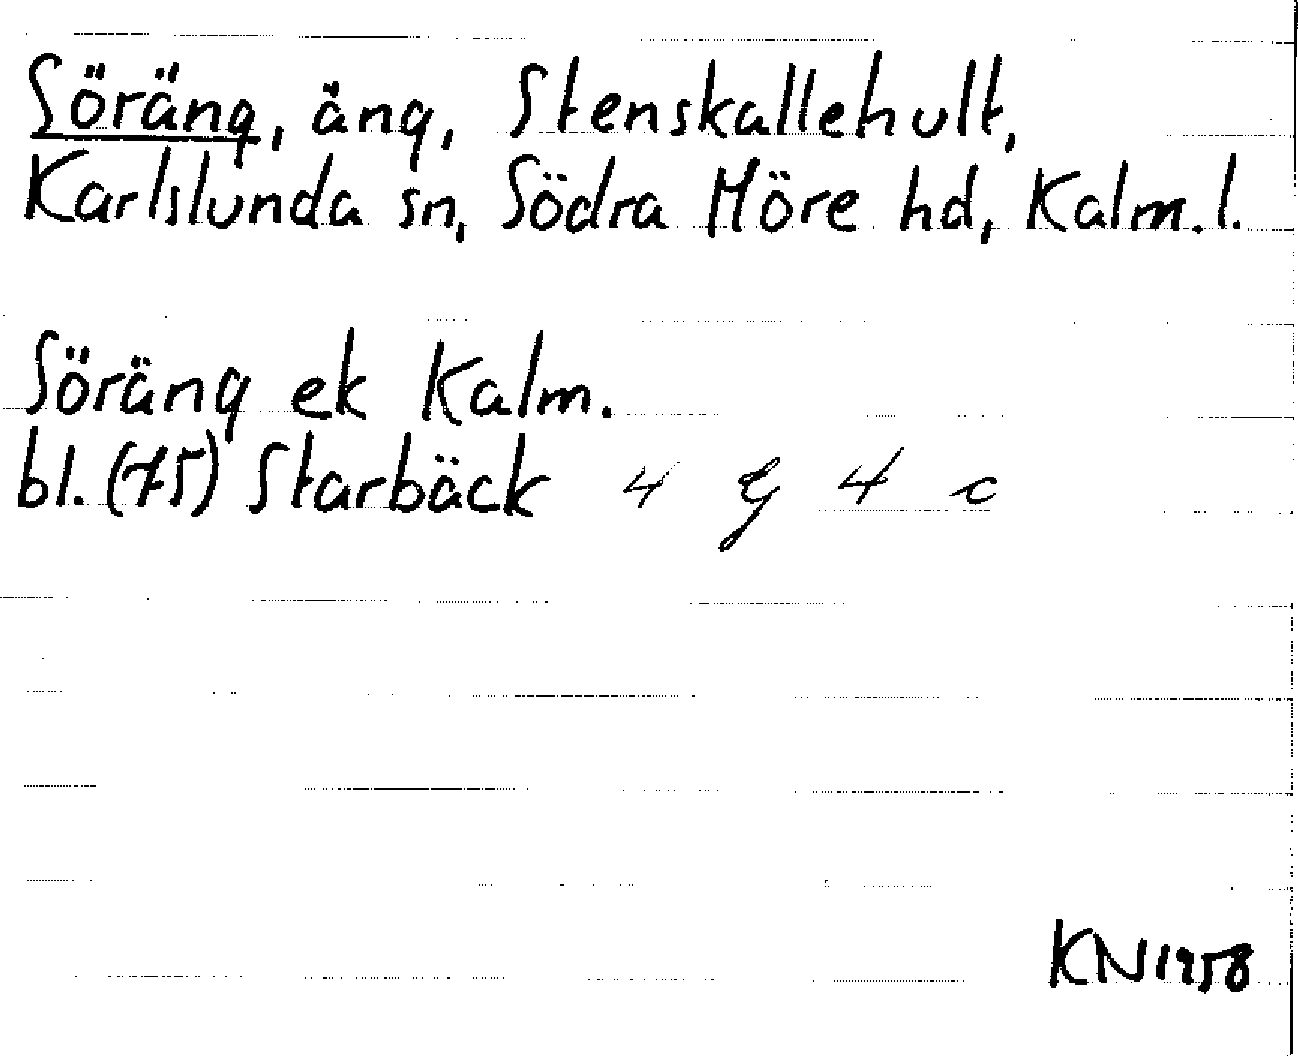 Söräng, äng, Stenskallehult,
Karlslunda sn, Södra Möre hd, Kalm.l.
Söräng ek Kalm.
bl. (75) Starbäck 4 G 4 c
KN 1958